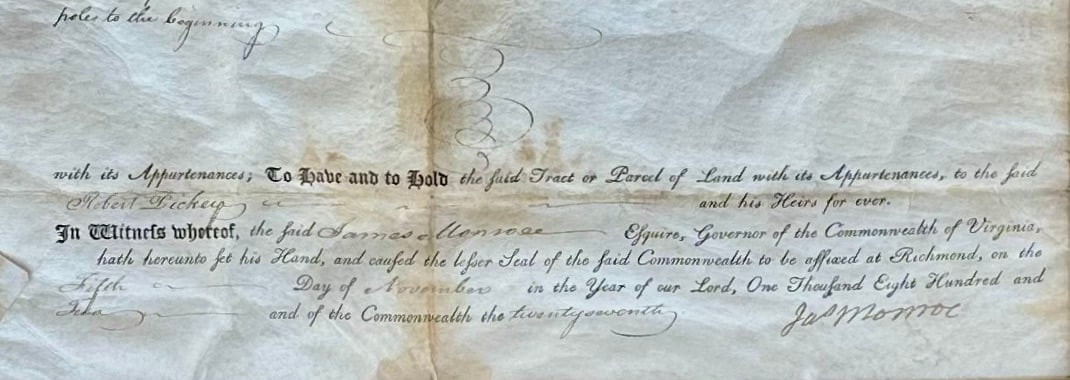 poles to the beginning
with its Appurtenances; To Have and to Hold the ſaid Tract or Parcel of Land with its Appurtenances, to the ſaid
Robert Dickey and his Heirs for ever.
In Witneſs whereof, the ſaid James Monroe Eſquire, Governor of the Commonwealth of Virginia,
hath hereunto ſet his Hand, and cauſed the leſſer Seal of the ſaid Commonwealth to be affixed at Richmond, on the
Fifth Day of November in the Year of our Lord, One Thouſand Eight Hundred and
Two and of the Commonwealth the twentyseventh
Jas Monroe